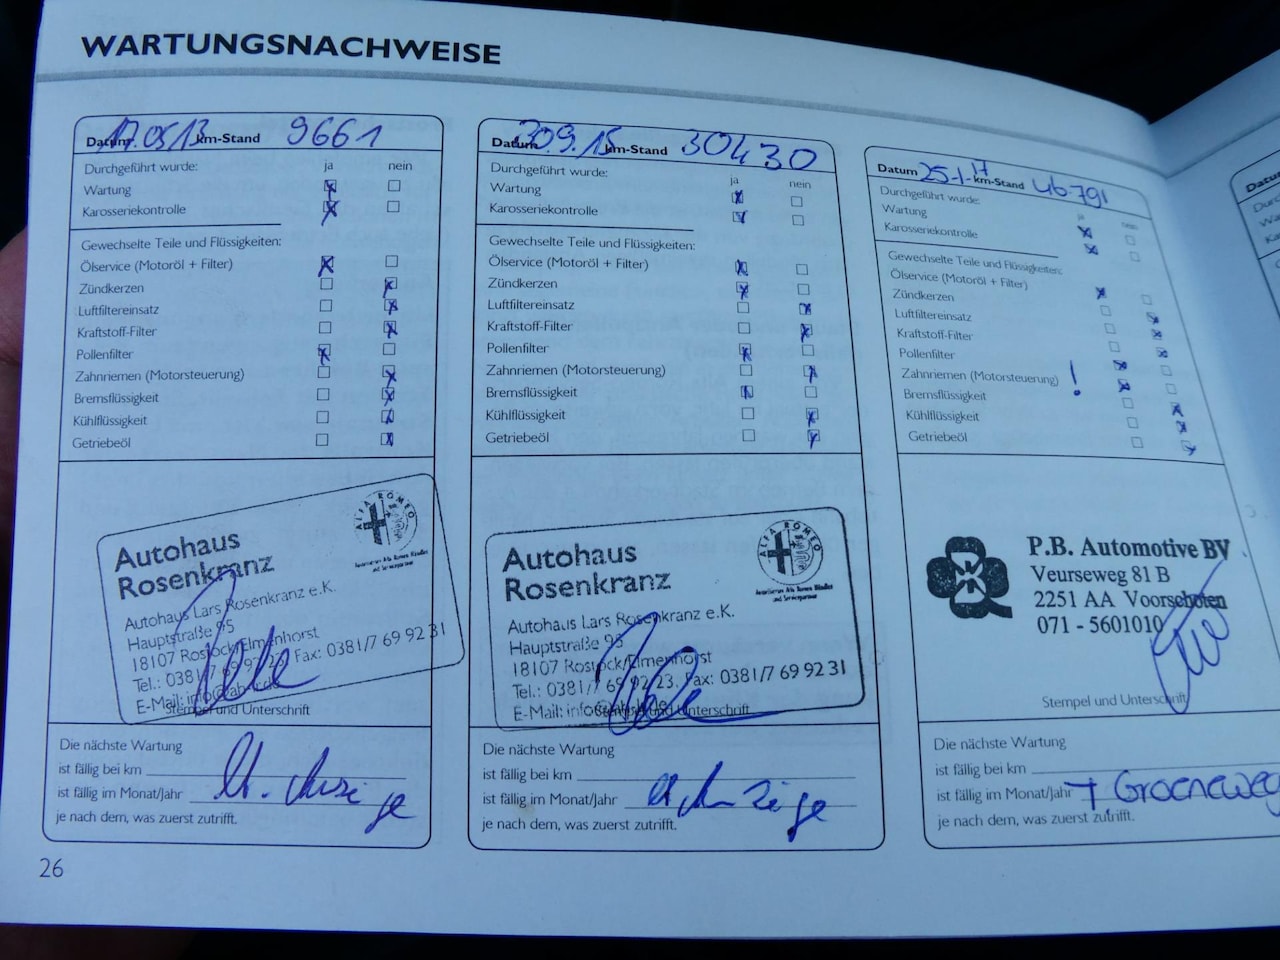 WARTUNGSNACHWEISE
Datum 17.05.13 km-Stand 9661
Durchgeführt wurde: ja nein
Wartung
Karosseriekontrolle
Gewechselte Teile und Flüssigkeiten:
Ölservice (Motoröl + Filter)
Zündkerzen
Luftfiltereinsatz
Kraftstoff-Filter
Pollenfilter
Zahnriemen (Motorsteuerung)
Bremsflüssigkeit
Kühlflüssigkeit
Getriebeöl
ALFA ROMEO
Autohaus
Rosenkranz
Autohaus Lars Rosenkranz e.K.
Hauptstraße 95
18107 Rostock/Elmenhorst
Tel.: 0381/7 69 92 23, Fax: 0381/7 69 92 31
E-Mail:
Stempel und Unterschrift
Die nächste Wartung
ist fällig bei km
ist fällig im Monat/Jahr
je nach dem, was zuerst zutrifft.
26
Datum 30.9.15 km-Stand 30430
Durchgeführt wurde: ja nein
Wartung
Karosseriekontrolle
Gewechselte Teile und Flüssigkeiten:
Ölservice (Motoröl + Filter)
Zündkerzen
Luftfiltereinsatz
Kraftstoff-Filter
Pollenfilter
Zahnriemen (Motorsteuerung)
Bremsflüssigkeit
Kühlflüssigkeit
Getriebeöl
ALFA ROMEO
Autohaus
Rosenkranz
Autohaus Lars Rosenkranz e.K.
Hauptstraße 95
18107 Rostock/Elmenhorst
Tel.: 0381/7 69 92 23, Fax: 0381/7 69 92 31
E-Mail:
Stempel und Unterschrift
Die nächste Wartung
ist fällig bei km
ist fällig im Monat/Jahr
je nach dem, was zuerst zutrifft.
Datum 25-1-17 km-Stand 46791
Durchgeführt wurde: ja nein
Wartung
Karosseriekontrolle
Gewechselte Teile und Flüssigkeiten:
Ölservice (Motoröl + Filter)
Zündkerzen
Luftfiltereinsatz
Kraftstoff-Filter
Pollenfilter
Zahnriemen (Motorsteuerung) !
Bremsflüssigkeit
Kühlflüssigkeit
Getriebeöl
P.B. Automotive BV
Veurseweg 81 B
2251 AA Voorschoten
071 - 5601010
Stempel und Unterschrift
Die nächste Wartung
ist fällig bei km
ist fällig im Monat/Jahr + Groeneweg
je nach dem, was zuerst zutrifft.